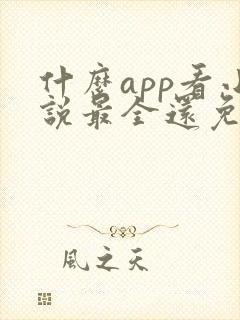 什麼app看小
說最全還免
風之天